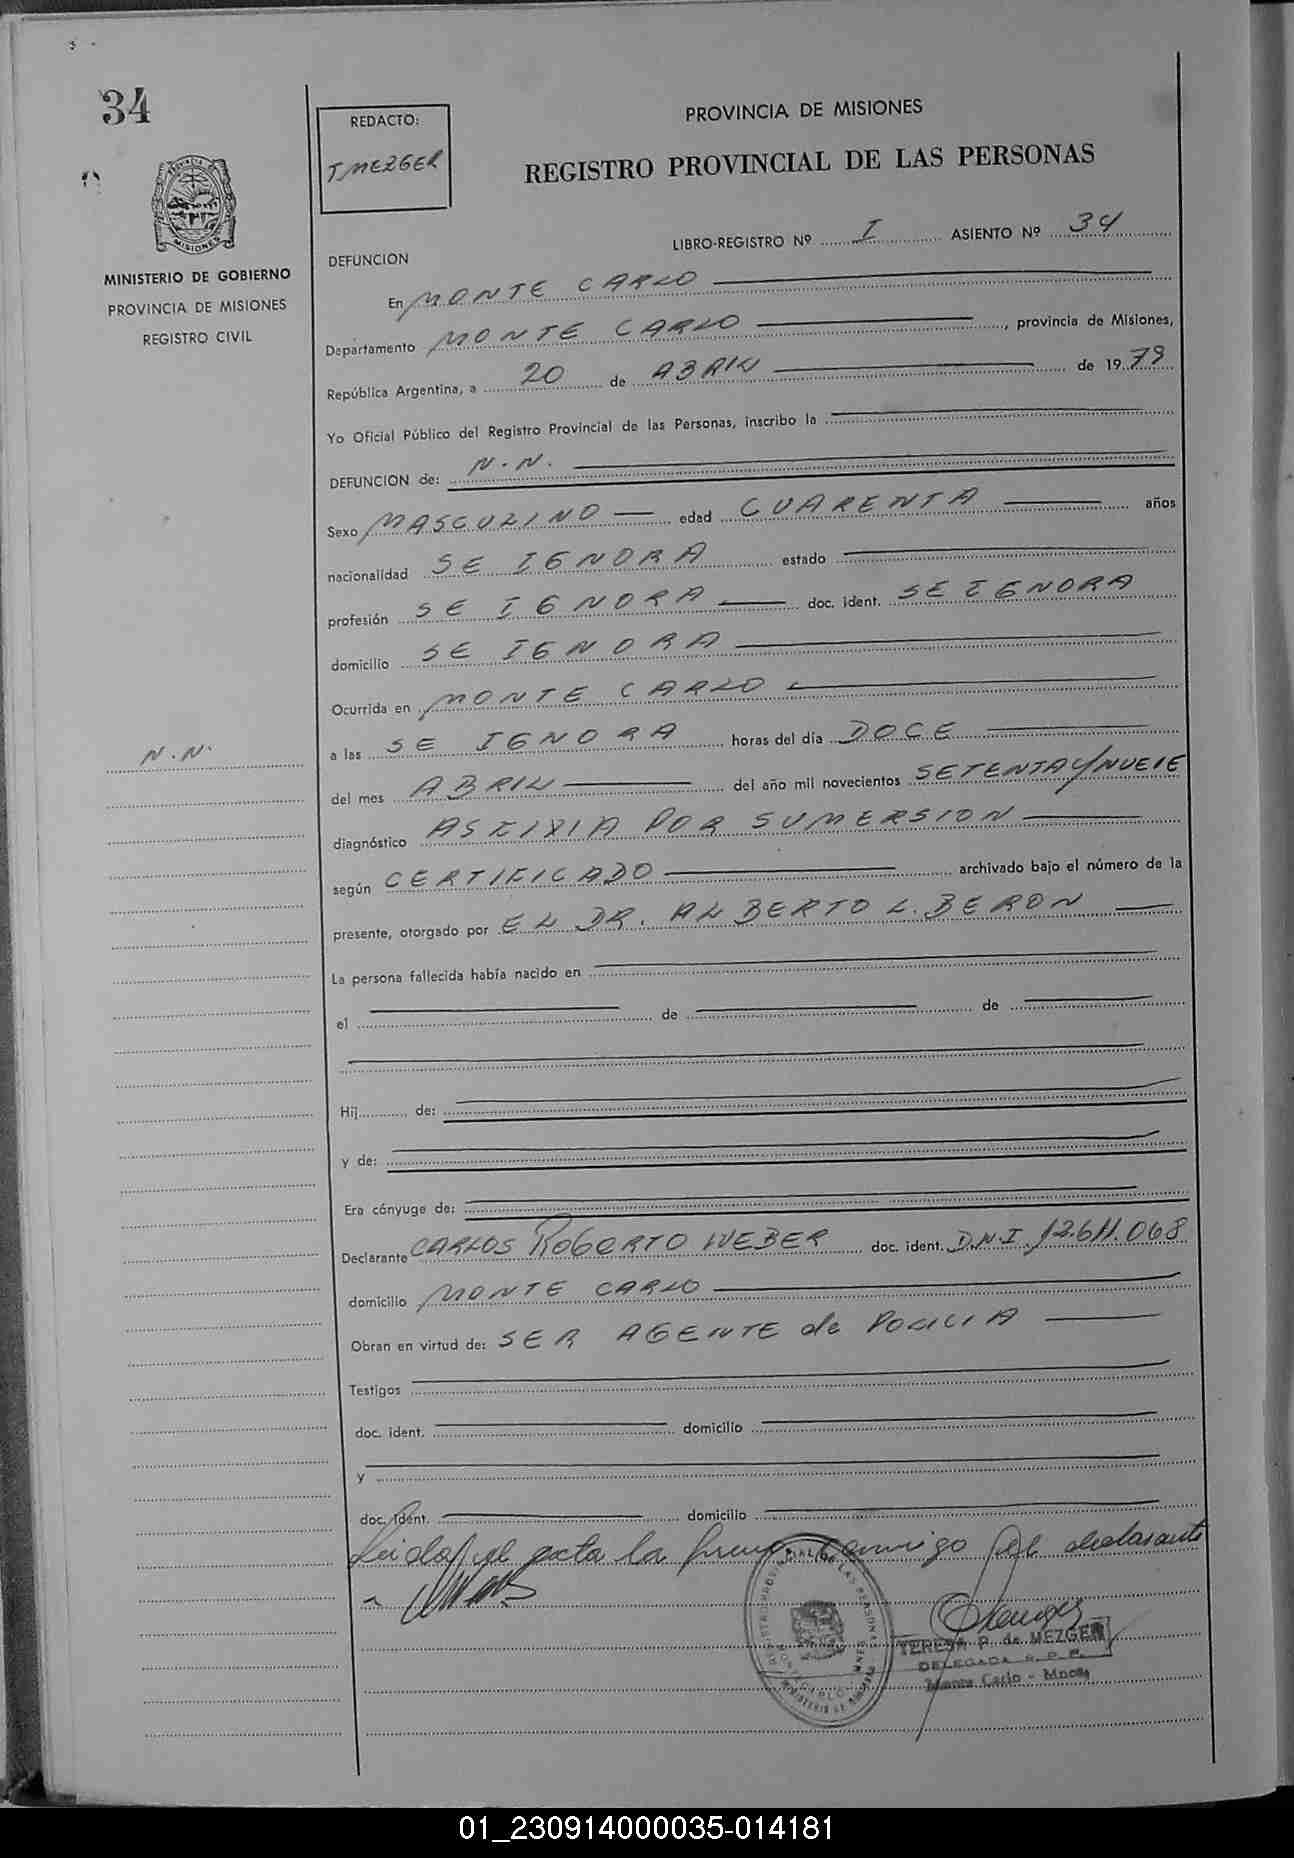 34
REDACTO:
T MEZGER
PROVINCIA DE MISIONES
REGISTRO PROVINCIAL DE LAS PERSONAS
LIBRO-REGISTRO Nº I ASIENTO Nº 34
PROVINCIA DE
MISIONES
MINISTERIO DE GOBIERNO
PROVINCIA DE MISIONES
REGISTRO CIVIL
DEFUNCION
En MONTE CARLO
Departamento MONTE CARLO, provincia de Misiones,
República Argentina, a 20 de ABRIL de 1979
Yo Oficial Público del Registro Provincial de las Personas, inscribo la
DEFUNCION de: N.N.
Sexo MASCULINO edad CUARENTA años
nacionalidad SE IGNORA estado
profesión SE IGNORA doc. ident. SE IGNORA
domicilio SE IGNORA
Ocurrida en MONTE CARLO
N.N.
a las SE IGNORA horas del día DOCE
del mes ABRIL del año mil novecientos SETENTA Y NUEVE
diagnóstico ASFIXIA POR SUMERSION
según CERTIFICADO archivado bajo el número de la
presente, otorgado por EL DR. ALBERTO L. BERON
La persona fallecida había nacido en
el de de
Hij de:
y de:
Era cónyuge de:
Declarante CARLOS ROBERTO WEBER doc. ident. D.N.I. 12.611.068
domicilio MONTE CARLO
Obran en virtud de: SER AGENTE de POLICIA
Testigos
doc. ident. domicilio
y
doc. ident. domicilio
Leida el acta la firma conmigo el declarante
TERESA P. de MEZGER
DELEGADA R. P. P.
Monte Carlo - Mnes.
01_230914000035-014181